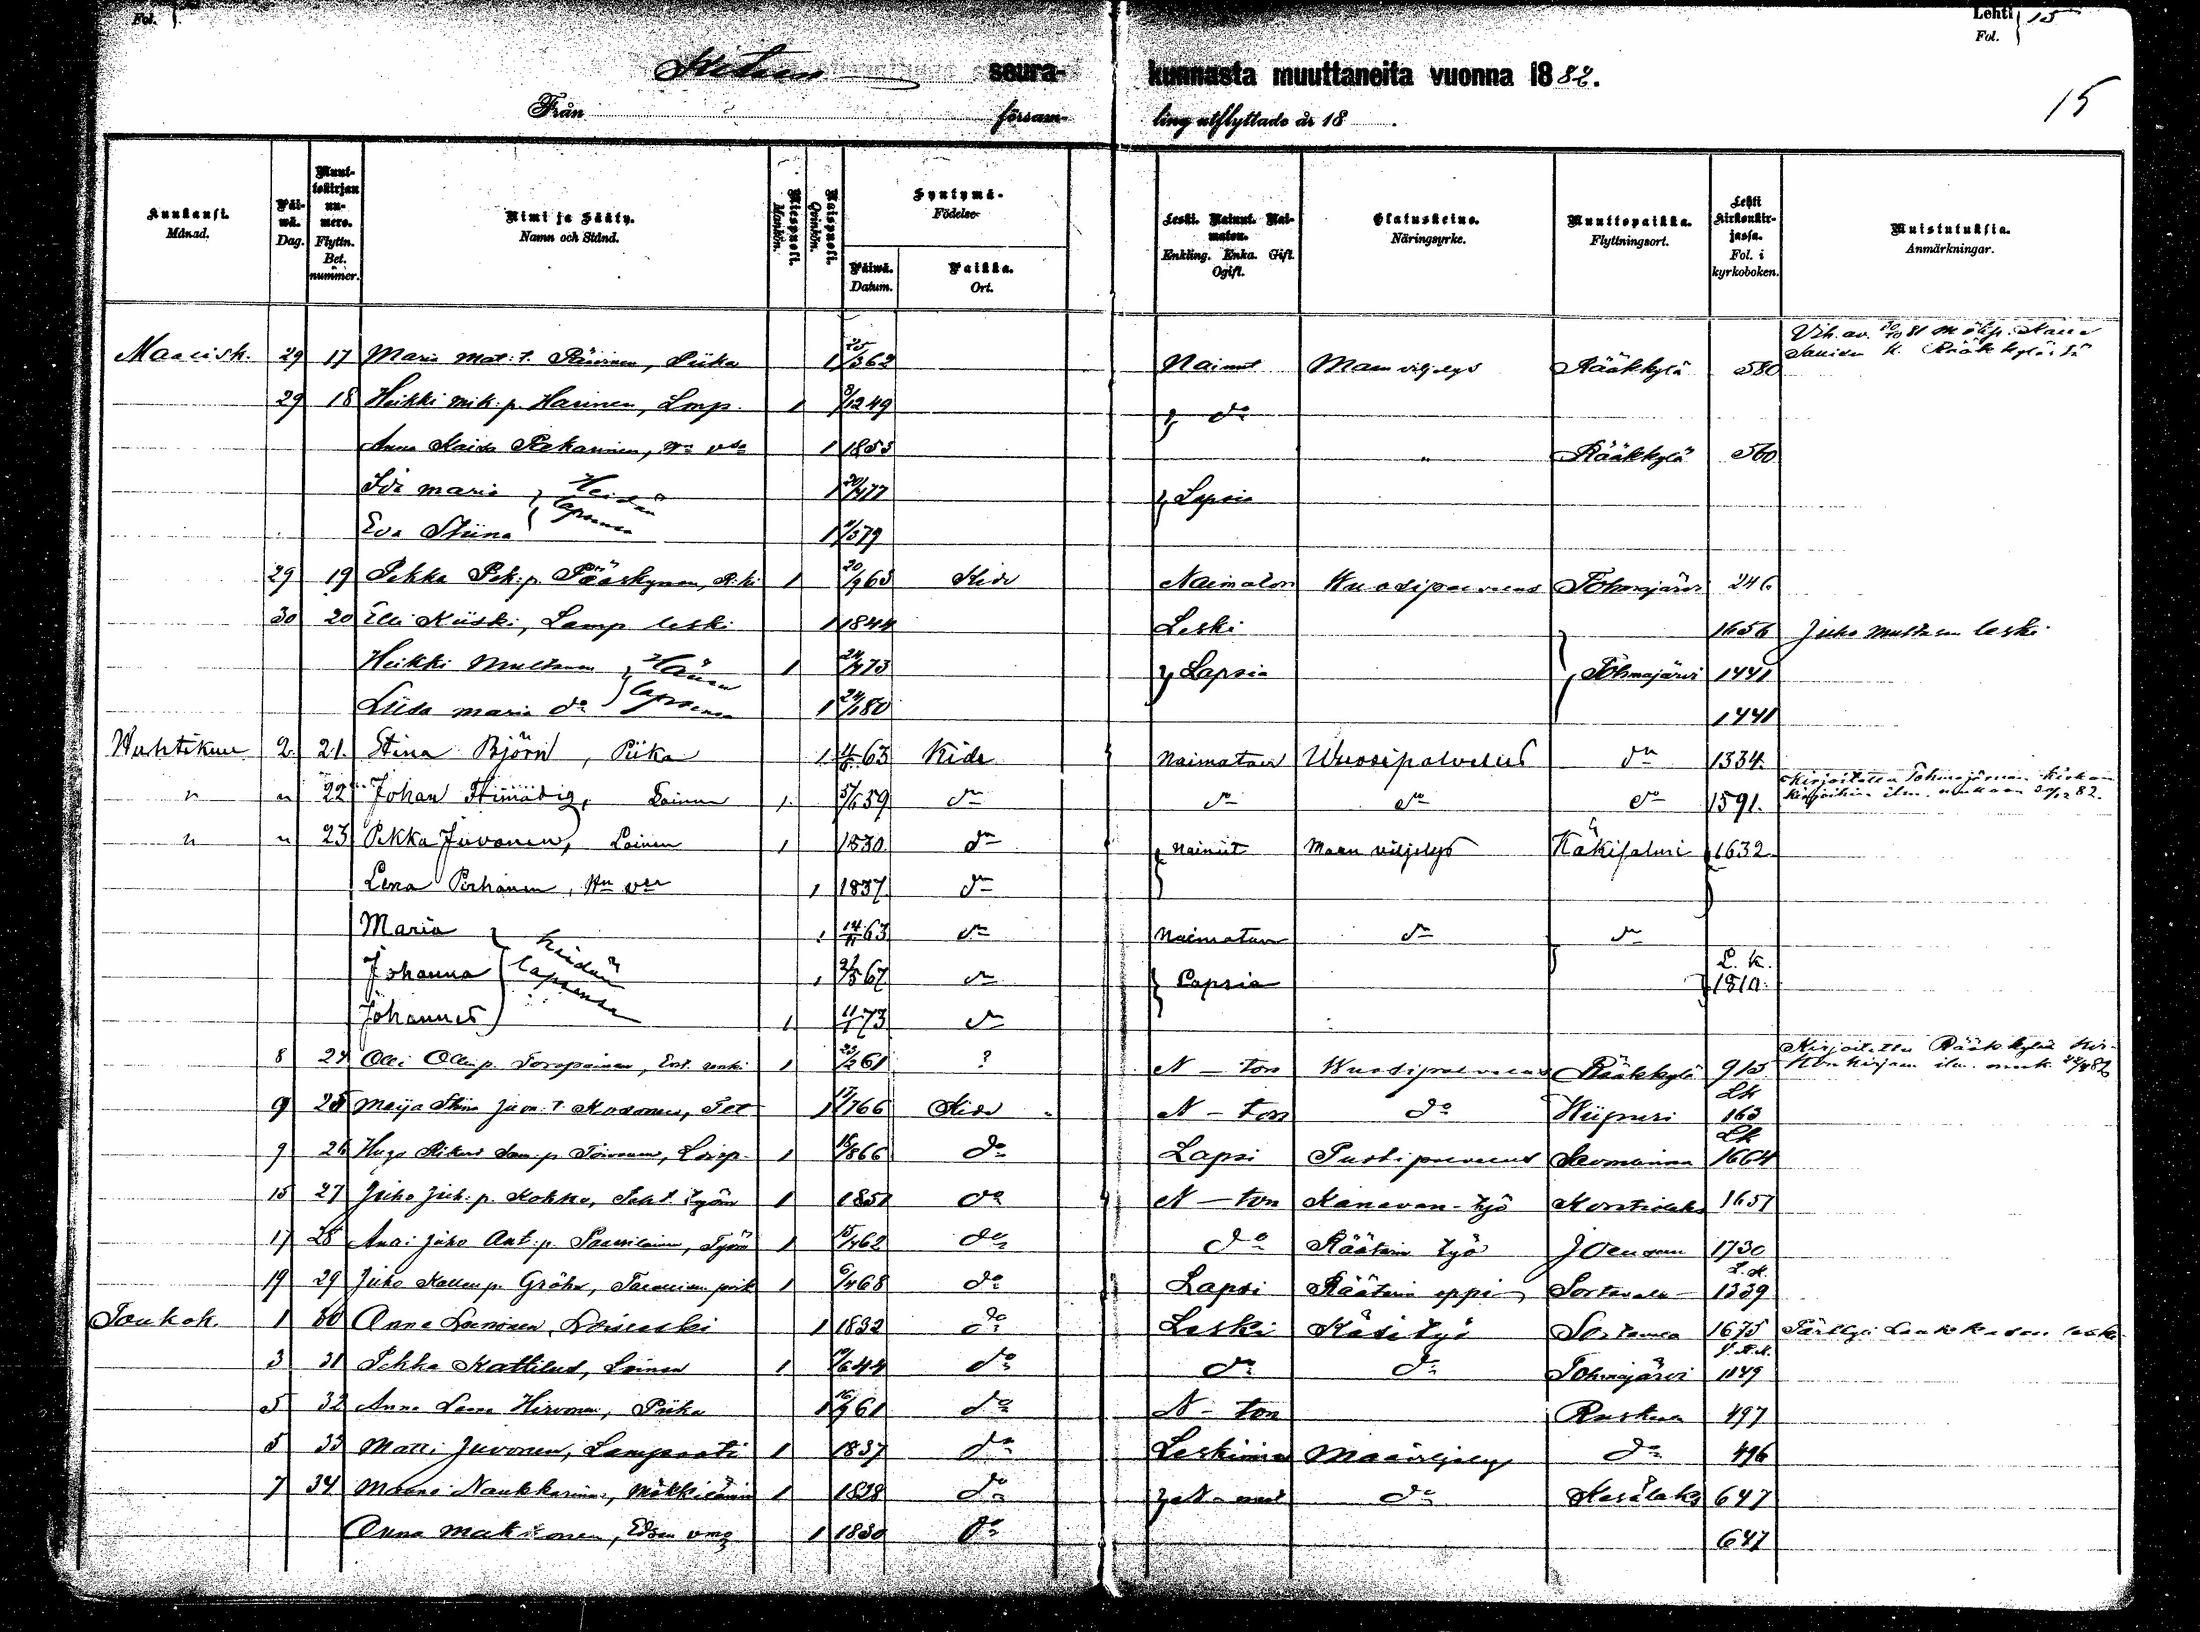 Lehti 15
Fol. Fol.
Kiteen seura- kunnasta muuttaneita vuonna 1882.
Från försam- ling utflyttade år 18 .
15
Kuukausi. Månad. Päi-wä. Dag. Muut-tokirjan nu-mero. Flyttn. Bet. nummer. Nimi ja Sääty. Namn och Stånd. Miespuoli. Mankön. Naispuoli. Qvinkön. Syntymä- Födelse- Päiwä. Datum. Paikka. Ort. Leski. Nainut. Nai-maton. Enkling. Enka. Gift. Ogift. Elatuskeino. Näringsyrke. Muuttopaikka. Flyttningsort. Lehti kirkonkir-jassa. Fol. i kyrkoboken. Muistutuksia. Anmärkningar.
Maalisk. 29 17 Maria Mat:t. Päivinen, Piika 1 25/3 62 Nainut Maanviljelys Rääkkylä 580 Vih. av. 30/10 81
29 18 Heikki Mik:p. Harinen, Lmp. 1 8/12 49 do
Anna Kaisa Pekarinen, 1 1853 " Rääkkylä 560
Ida Maria Heidän lapsensa 1 20/4 77 Lapsia
Eva Stiina 1 /3 79
29 19 Pekka Pek:p. Pääskynen, R:ki 1 20/9 65 Kide Naimaton Vuosipalvelus Tohmajärvi 246
30 20 Elli Kiiski, Lamp leski 1 1844 Leski 1656 Juho Multasen leski
Heikki Multanen Hänen lapsensa 1 24/4 73 Lapsia Tohmajärvi 1441
Liisa Maria do 1 24/1 80 1441
Huhtikuu 2 21. Stina Björn, Piika 1 63 Kide Naimaton Wuosipalvelus do 1334.
" " 22 Johan Loinen 1. 5/6 59 do do do do 1591. Kirjoitettu Tohmajärven kirkon kirjoihin ilm. mukaan 82.
" " 23 Pekka Juvonen, Loinen 1 1830 do Nainut Maanviljelys Käkisalmi 1632
Lena Pirhonen, Hn vmo 1 1837 do
Maria heidän lapsensa 1 14/11 63 do Naimaton do do
Johanna 1 2/5 67 do Lapsia L. k. 1810.
Johannes 1 11/1 73 do
8 24 Olli Olli p. Toropainen, Ent. renki 1 23/2 61 ? N - ton Wuosipalvelus Rääkkylä 915 Kirjoitettu Rääkkylän kir-konkirjaan ilm. muk.
9 25 Maija Stina Juo:t. Kosonen, 1 17/7 66 Kide N - ton do Wiipuri Lk 163
9 26 Hugo Rikard Sam:p. Toivonen, Loisp. 1 15/8 66 do Lapsi Puotipalvelus Savonlinna Lk 1664
15 27 Juho Juh:p. Kokko, työm 1 1851 do N - ton Kanavan-työ Kontiolaks 1657
17 28 Juho Ant:p. Pausilainen, Työm 1 15/4 62 do do Räätäin työ Joensuu 1730
19 29 Juho Kallen p. Gröhn, poik 1 6/4 68 do Lapsi Räätäin oppi Sortavala L.k. 1339
Toukok. 1 30 Anna Luonen, Loisleski 1 1832 do Leski Käsityö Sortavala 1675 Pärttyli leski
3 31 Pekka Kattilus, Loinen 1 /6 44 do do do Tohmajärvi 1149
5 32 Anna Leena Hirvonen, Piika 1 16/9 61 do N - ton Ruskeala 497
5 33 Matti Juvonen, Lampuoti 1 1837 do Leskimies Maaviljelys do 496
7 34 Naukkarinen, Mökkiläinen 1 1828 do do Kesälaks 647
Anna Makkonen, Edsen vmo 1 1830 do 647